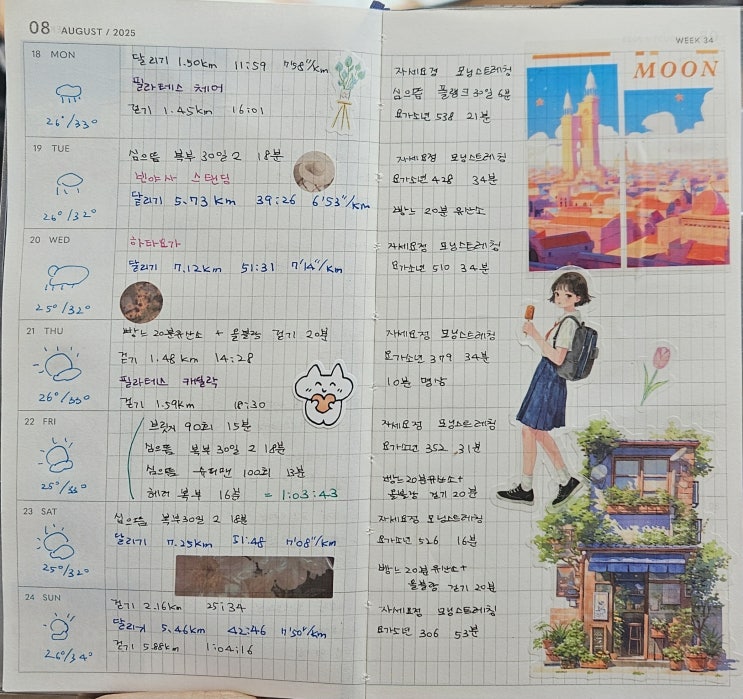 08 AUGUST / 2025
18 MON
26°/33°
달리기 1.50km 11:59 7'58"/km
필라테스 체어
걷기 1.45km 16:01
19 TUE
26°/32°
심으뜸 복부 30일 2 18분
빈야사 스탠딩
달리기 5.73km 39:26 6'53"/km
20 WED
25°/32°
하타요가
달리기 7.12km 51:31 7'14"/km
21 THU
26°/33°
빵느 20분유산소 + 올블랑 걷기 20분
걷기 1.48km 14:28
필라테스 캐딜락
걷기 1.59km 18:30
22 FRI
25°/33°
브릿지 90회 15분
심으뜸 복부 30일 2 18분
심으뜸 슈퍼맨 100회 13분
복부 16분 = 1:03:43
23 SAT
25°/32°
심으뜸 복부30일 2 18분
달리기 7.25km 51:48 7'08"/km
24 SUN
26°/34°
걷기 2.16km 25:34
달리기 5.46km 42:46 7'50"/km
걷기 5.88km 1:04:16
WEEK 34
MOON
자세요정 모닝스트레칭
심으뜸 플랭크 30일 6분
요가소년 538 21분
자세요정 모닝스트레칭
요가소년 428 34분
빵느 20분 유산소
자세요정 모닝스트레칭
요가소년 510 34분
자세요정 모닝스트레칭
요가소년 379 34분
10분 명상
자세요정 모닝스트레칭
요가소년 352 31분
빵느 20분유산소+
올블랑 걷기 20분
자세요정 모닝스트레칭
요가소년 526 16분
빵느 20분유산소+
올블랑 걷기 20분
자세요정 모닝스트레칭
요가소년 306 53분